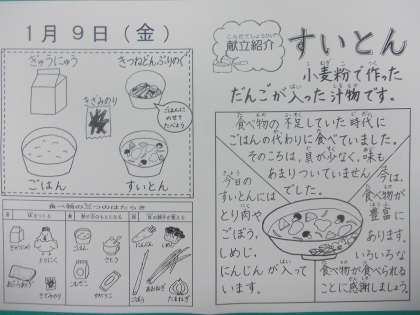 1月9日(金)
ぎゅうにゅう
きつねどんぶりのぐ
きざみのり
ごはんに
のせて
たべよう
ごはん
すいとん
食べ物の三つのはたらき
ぎゅうにゅう
とりにく
あぶらあげ
きざみのり
ごはん
さとう
こむぎこ
にんじん
ごぼう
あおねぎ
たまねぎ
献立紹介
すいとん
小麦粉で作った
だんごが入った汁物です。
食べ物の不足していた時代に
ごはんの代わりに食べていました。
そのころは、具が少なく、味も
あまりついていません
でした。
今日の
すいとんには
とり肉や
ごぼう、
しめじ、
にんじんが入って
います。
今は、
食べ物が
豊富に
あります。
いろいろな
食べ物が食べられる
ことに感謝しましょう。